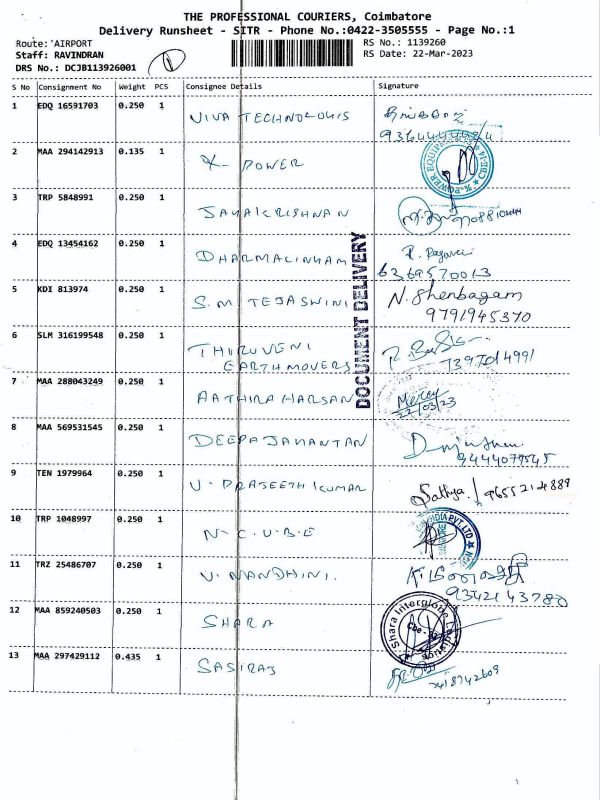 THE PROFESSIONAL COURIERS, Coimbatore
Delivery Runsheet - SITR - Phone No.:0422-3505555 - Page No.:1
Route: AIRPORT RS No.: 1139260
Staff: RAVINDRAN RS Date: 22-Mar-2023
DRS No.: DCJB113926001 1
S No Consignment No Weight PCS Consignee Details Signature
1 EDQ 16591703 0.250 1 VIVA TECHNOLOUIS
2 MAA 294142913 0.135 1 X- POWER
3 TRP 5848991 0.250 1 JAYAKRISHNAN
4 EDQ 13454162 0.250 1 DHARMALINHAM
6369570013
5 KDI 813974 0.250 1 S.M. TEJASWINI N. Shenbagam
9791945370
DOCUMENT DELIVERY
6 SLM 316199548 0.250 1 THIRUVENI
EARTH MOVERS 7397014991
7 MAA 288043249 0.250 1 AATHIRA HARSAN Mercy
22/03/23
8 MAA 569531545 0.250 1 DEEPA JAYANTAN
9444077545
9 TEN 1979964 0.250 1 V. PRAJEETH KUMAR Sathya / 9655214889
10 TRP 1048997 0.250 1 N-C.U.B.E
INDIA PVT LTD
11 TRZ 25486707 0.250 1 V. NANDHINI.
9342143780
12 MAA 859240503 0.250 1 SHARA
Shara Interglobe
13 MAA 297429112 0.435 1 SASIRAJ